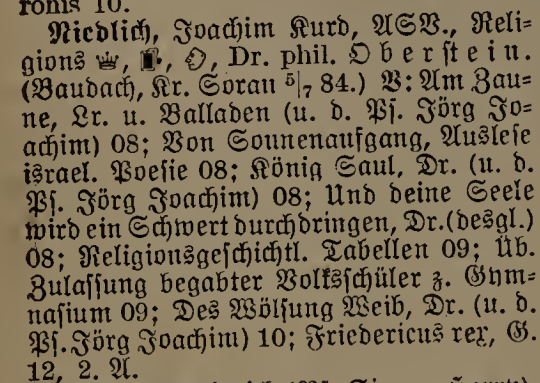 ronis 10.
Niedlich, Joachim Kurd, ASV., Reli-
gions , Dr. phil. Oberstein.
(Baudach, Kr. Sorau 5/7 84.) V: Am Zau-
ne, Lr. u. Balladen (u. d. Ps. Jörg Jo-
achim) 08; Von Sonnenaufgang, Auslese
israel. Poesie 08; König Saul, Dr. (u. d.
Ps. Jörg Joachim) 08; Und deine Seele
wird ein Schwert durchdringen, Dr. (desgl.)
08; Religionsgeschichtl. Tabellen 09; Üb.
Zulassung begabter Volksschüler z. Gym-
nasium 09; Des Wölsung Weib, Dr. (u. d.
Ps. Jörg Joachim) 10; Friedericus rex, G.
12, 2. A.